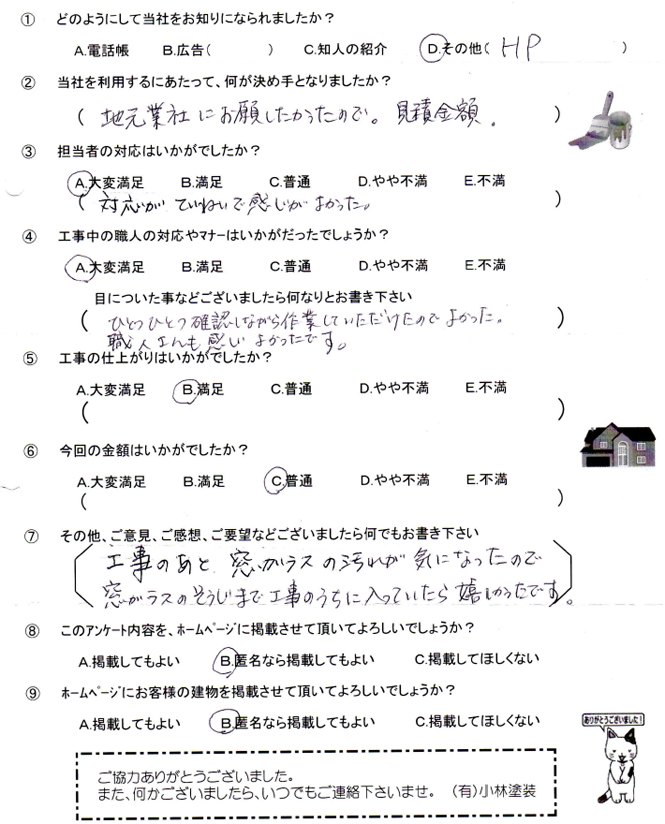 ① どのようにして当社をお知りになられましたか？
A.電話帳 B.広告( ) C.知人の紹介 D.その他( HP )
② 当社を利用するにあたって、何が決め手となりましたか？
( 地元業社にお願したかったので。見積金額. )
③ 担当者の対応はいかがでしたか？
A.大変満足 B.満足 C.普通 D.やや不満 E.不満
( 対応がていねいで感じがよかった。 )
④ 工事中の職人の対応やマナーはいかがだったでしょうか？
A.大変満足 B.満足 C.普通 D.やや不満 E.不満
目についた事などございましたら何なりとお書き下さい
( ひとつひとつ確認しながら作業していただけたのでよかった。 )
職人さんも感じよかったです。
⑤ 工事の仕上がりはいかがでしたか？
A.大変満足 B.満足 C.普通 D.やや不満 E.不満
( )
⑥ 今回の金額はいかがでしたか？
A.大変満足 B.満足 C.普通 D.やや不満 E.不満
( )
⑦ その他、ご意見、ご感想、ご要望などございましたら何でもお書き下さい
工事のあと 窓ガラスの汚れが気になったので
窓ガラスのそうじまで工事のうちに入っていたら嬉しかったです。
⑧ このアンケート内容を、ホームページに掲載させて頂いてよろしいでしょうか？
A.掲載してもよい B.匿名なら掲載してもよい C.掲載してほしくない
⑨ ホームページにお客様の建物を掲載させて頂いてよろしいでしょうか？
A.掲載してもよい B.匿名なら掲載してもよい C.掲載してほしくない
ありがとうございました！
ご協力ありがとうございました。
また、何かございましたら、いつでもご連絡下さいませ。 (有)小林塗装